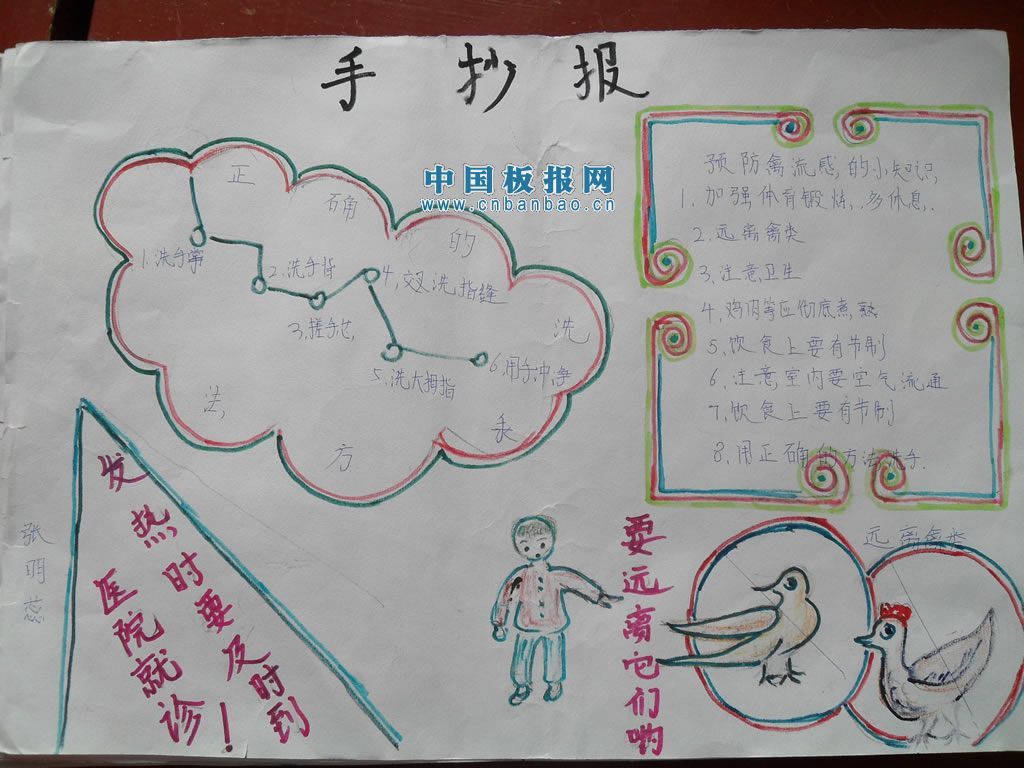 手抄报
中国板报网
www.cnbanbao.cn
正确的洗手方法
1.洗手掌
2.洗手背
3.搓手心
4.交叉洗指缝
5.洗大拇指
6.用手冲净
预防禽流感的小知识
1.加强体育锻炼,多休息.
2.远离禽类
3.注意卫生
4.鸡肉等应彻底煮熟
5.饮食上要有节制
6.注意室内要空气流通
7.饮食上要有节制
8.用正确的方法洗手.
发热时要及时到
医院就诊！
张明蕊
要远离它们哟
远离禽类